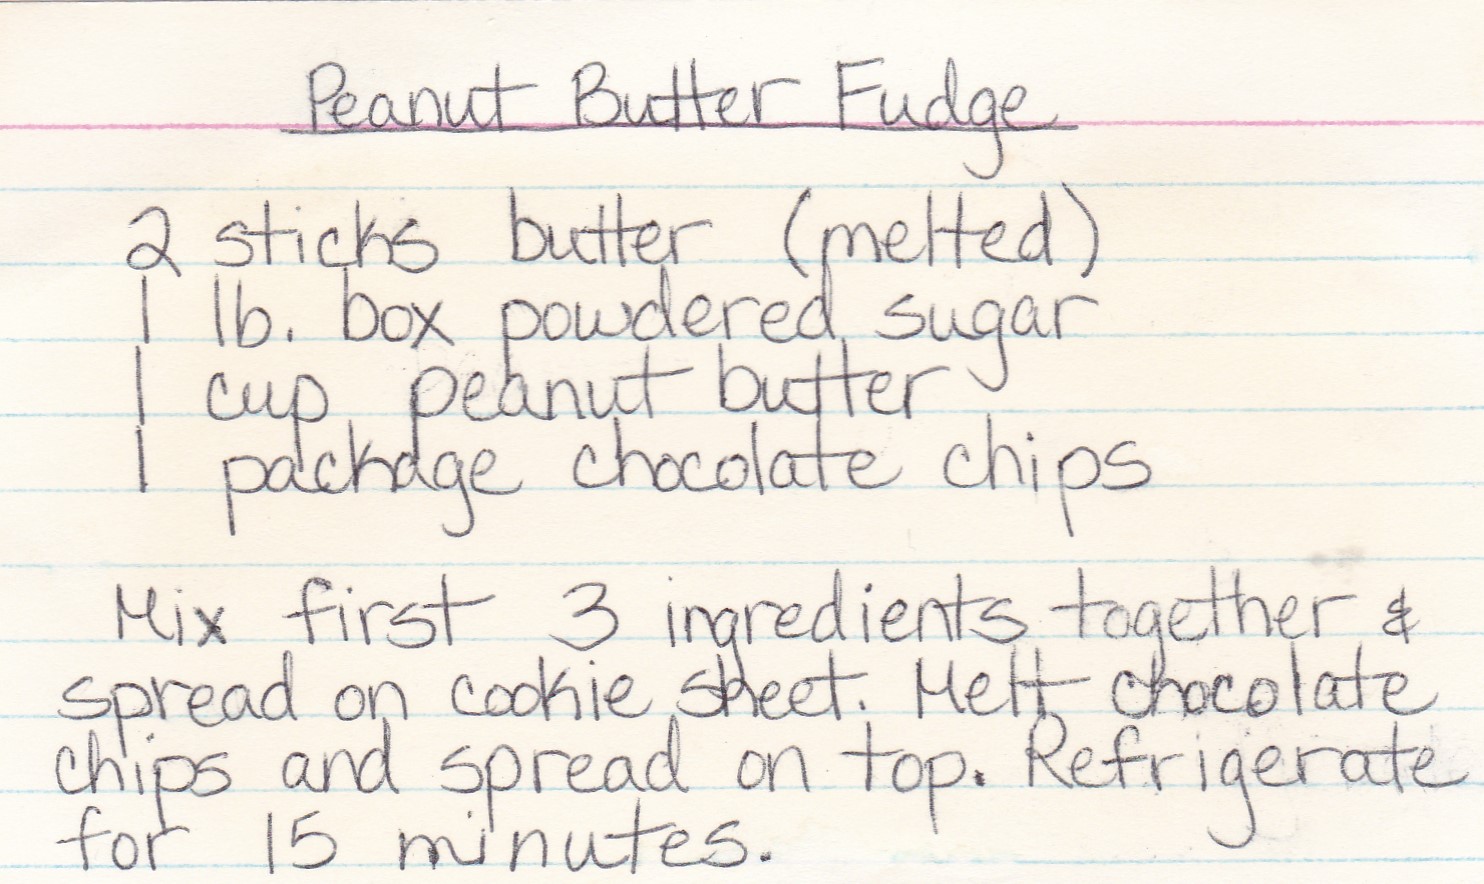 Peanut Butter Fudge
2 sticks butter (melted)
1 lb. box powdered sugar
1 cup peanut butter
1 package chocolate chips
Mix first 3 ingredients together &
spread on cookie sheet. Melt chocolate
chips and spread on top. Refrigerate
for 15 minutes.